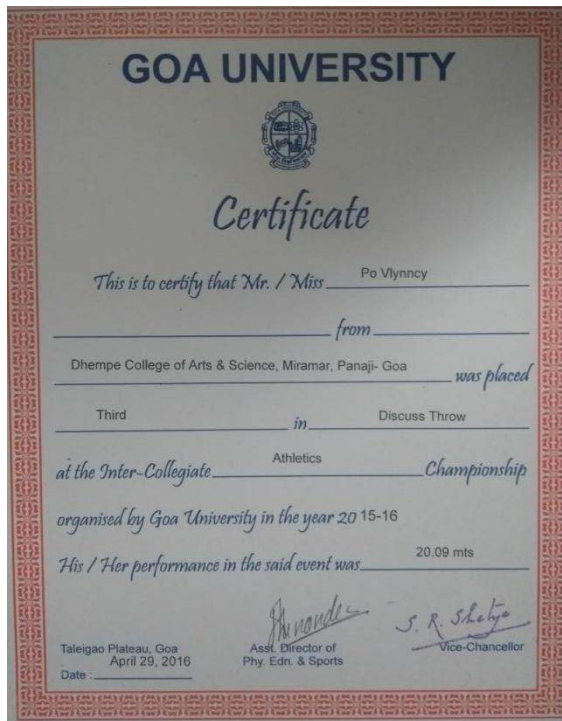 GOA UNIVERSITY
Certificate
This is to certify that Mr. / Miss Po Vlynncy
from
Dhempe College of Arts & Science, Miramar, Panaji- Goa was placed
Third in Discuss Throw
at the Inter-Collegiate Athletics Championship
organised by Goa University in the year 20 15-16
His / Her performance in the said event was 20.09 mts
S. R. Shetye
Taleigao Plateau, Goa Asst. Director of Vice-Chancellor
April 29, 2016 Phy. Edn. & Sports
Date :